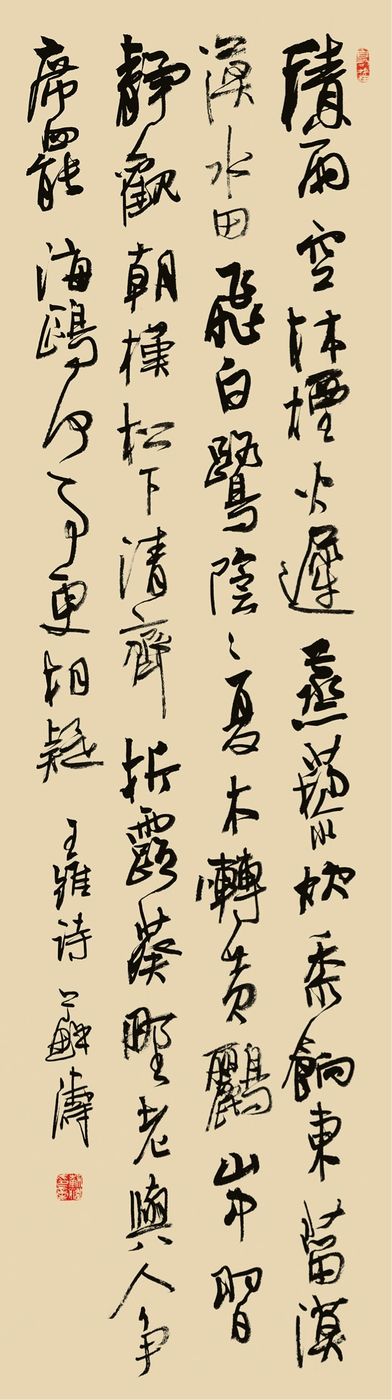 積雨空林煙火遲蒸藜炊黍餉東菑漠
漠水田飛白鷺陰〻夏木囀黄鸝山中習
靜觀朝槿松下清齊折露葵野老與人争
席罷海鷗何事更相疑
王維诗 蘇濤